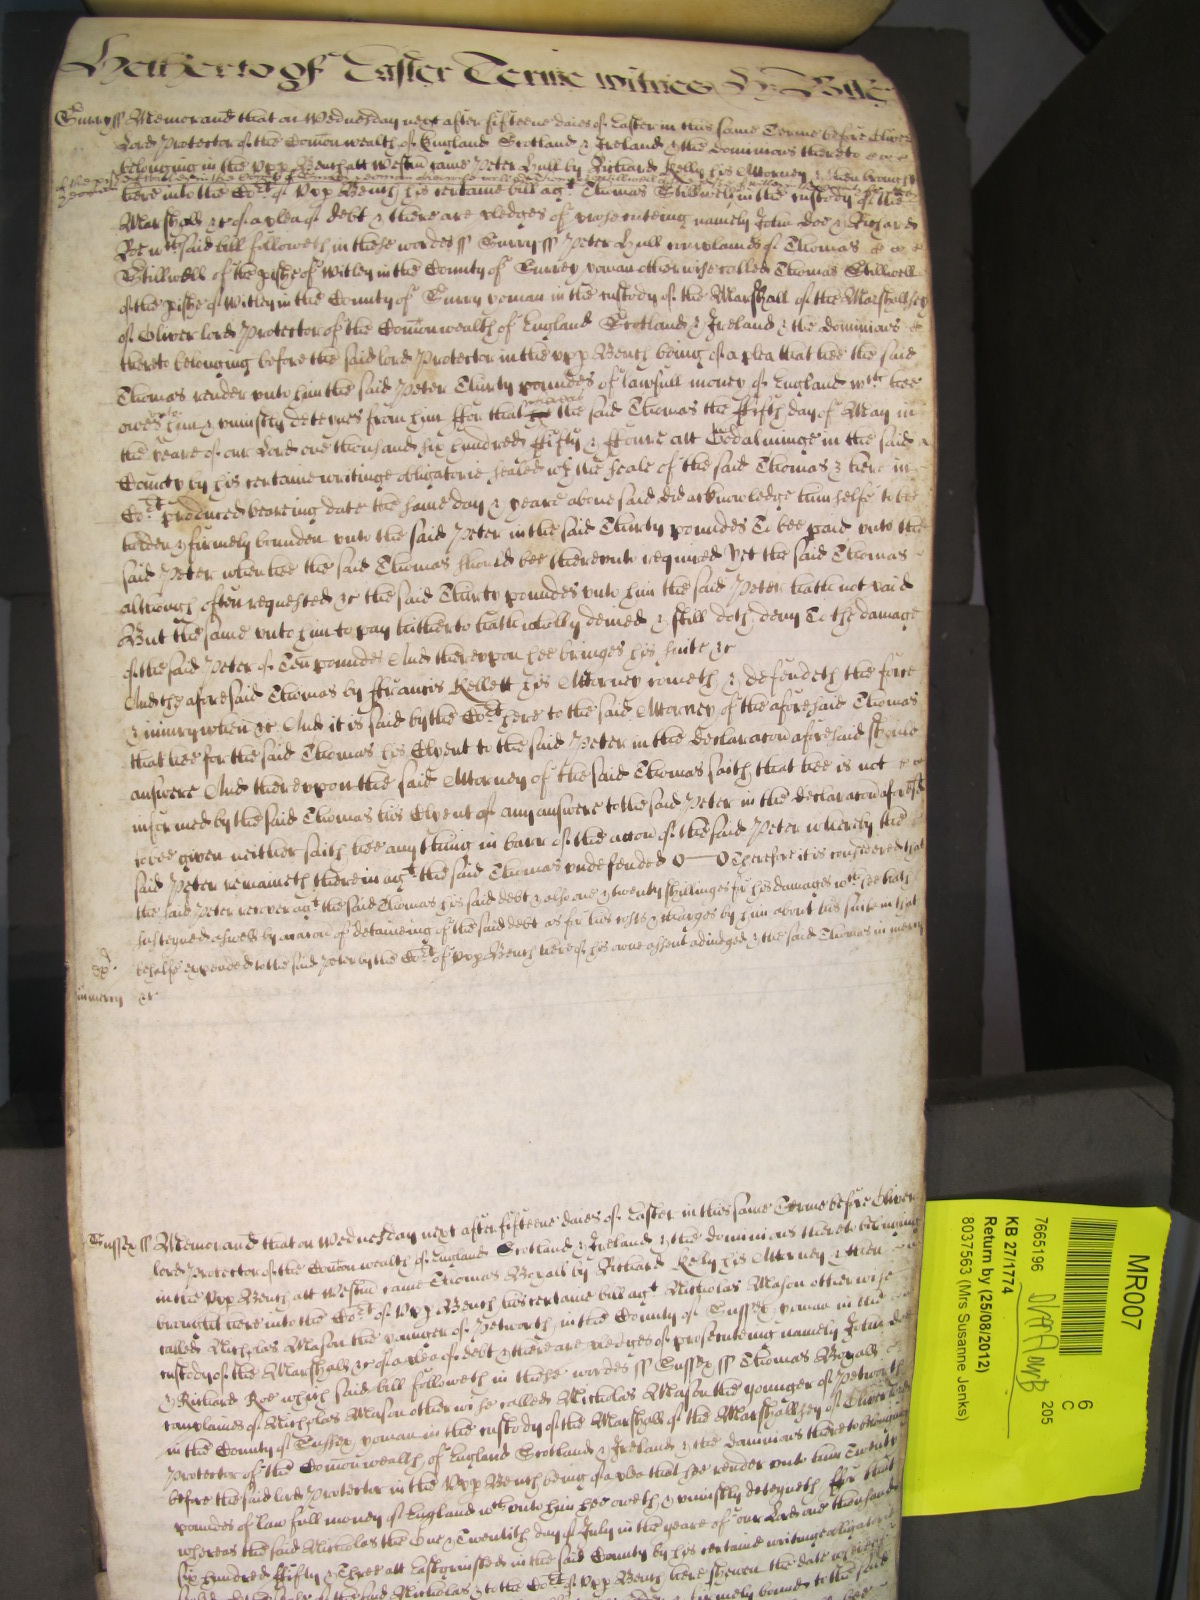 Hetherto of Easter Terme witnes
Surry ss Memorand that on Wednesday next after fifteene daies of Easter in this same Terme before Oliver
Lord Protector of the Com̄onwealth of England Scotland & Ireland & the dominions thereto
belonging in the vpp Bench att Westm̄ came Peter Hull by Richard Kelly his Attorney & then brought
here into the Cort of vpp Bench his certaine bill agt Thomas Stillwell in the custody of the
Marshall &c of a plea of debt & there are pledges of prosecuteing namely John Doe & Richard
Roe wch said bill followeth in these wordes ss Surry ss Peter Hull complaines of Thomas
Stillwell of the pishe of Witley in the County of Surrey yoman otherwise called Thomas Stillwell
of the pishe of Witley in the County of Surry yoman in the custody of the Marshall of the Marshallsey
of Oliver lord Protector of the Com̄onwealth of England Scotland & Ireland & the dominions
thereto belonging before the said lord Protector in the vpp Bench being of a plea that hee the said
Thomas render vnto him the said Peter Thirty poundes of lawfull money of England wch hee
owes him & vniustly deteynes from him ffor that whereas the said Thomas the ffifth day of May in
the yeare of our Lord one thousand six hundred ffifty & ffoure att Godalminge in the said
County by his certaine writinge obligatorie sealed wth the seale of the said Thomas & here in
Cort produced beareing date the same day & yeare abovesaid did acknowledge himselfe to be
holden & firmely bounden vnto the said Peter in the said Thirty poundes To bee paid vnto the
said Peter when hee the said Thomas should bee therevnto required Yet the said Thomas
although often requested &c the said Thirty poundes vnto him the said Peter hath not paid
But the same vnto him to pay hitherto hath wholly denied & still doth deny To the damage
of the said Peter of Ten poundes And therevpon hee bringes his suite &c
And the aforesaid Thomas by ffrancis Kellett his Attorney cometh & defendeth the force
& iniury when &c And it is said by the Cort here to the said Attorney of the aforesaid Thomas
that hee for the said Thomas his Clyent to the said Peter in the declaracon aforesaid should
answere And therevpon the said Attorney of the said Thomas saith that hee is not
informed by the said Thomas his Clyent of any answere to the said Peter in the declaracon aforesd
to bee given neither saith hee any thing in barr of the accon of the said Peter whereby the
said Peter remaineth therein agt the said Thomas vndefended Therefore it is considered that
the said Peter recover agt the said Thomas his said debt & also one & twenty shillinges for his damages wch he hath
susteyned aswell by occacon of deteineing of the said debt as for his costs & charges by him about his suite in that
behalfe expended to the said Peter by the Cort of vpp Bench here of his owne assent adiudged & the said Thomas in mercy
in mercy &c
Sussex ss Memorand that on Wednesday next after fifteene daies of Easter in this same Terme before Oliver
lord Protector of the Com̄onwealth of England Scotland & Ireland & the dominions thereto belonging
in the vpp Bench att Westm̄ came Thomas Boxall by Richard Kelly his Attorney & then
brought here into the Cort of vpp Bench his certaine bill agt Nicholas Mason otherwise
called Nicholas Mason the younger of Petworth in the County of Sussex yoman in the
custody of the Marshall &c of a plea of debt & there are pledges of prosecuteing namely John Doe
& Richard Roe which said bill followeth in these wordes ss Sussex ss Thomas Boxall
complaines of Nicholas Mason otherwise called Nicholas Mason the younger of Petworth
in the County of Sussex yoman in the custody of the Marshall of the Marshallsey of Oliver lord
Protector of the Com̄onwealth of England Scotland & Ireland & the dominions thereto belonging
before the said lord Protector in the vpp Bench being of a plea that hee render vnto him Twenty
poundes of lawfull money of England wch vnto him hee oweth & vniustly deteyneth ffor that
whereas the said Nicholas the One & Twentith day of July in the yeare of our Lord one thousand
six hundred ffifty & Three att Eastgrinsteed in the said County by his certaine writinge obligatorie
of the said Nicholas & to the Cort of vpp Bench here shewen the date whereof
firmely bound to the said
MR007
6
C
205
7665196
KB 27/1774
Return by (25/08/2012)
8037563 (Mrs Susanne Jenks)